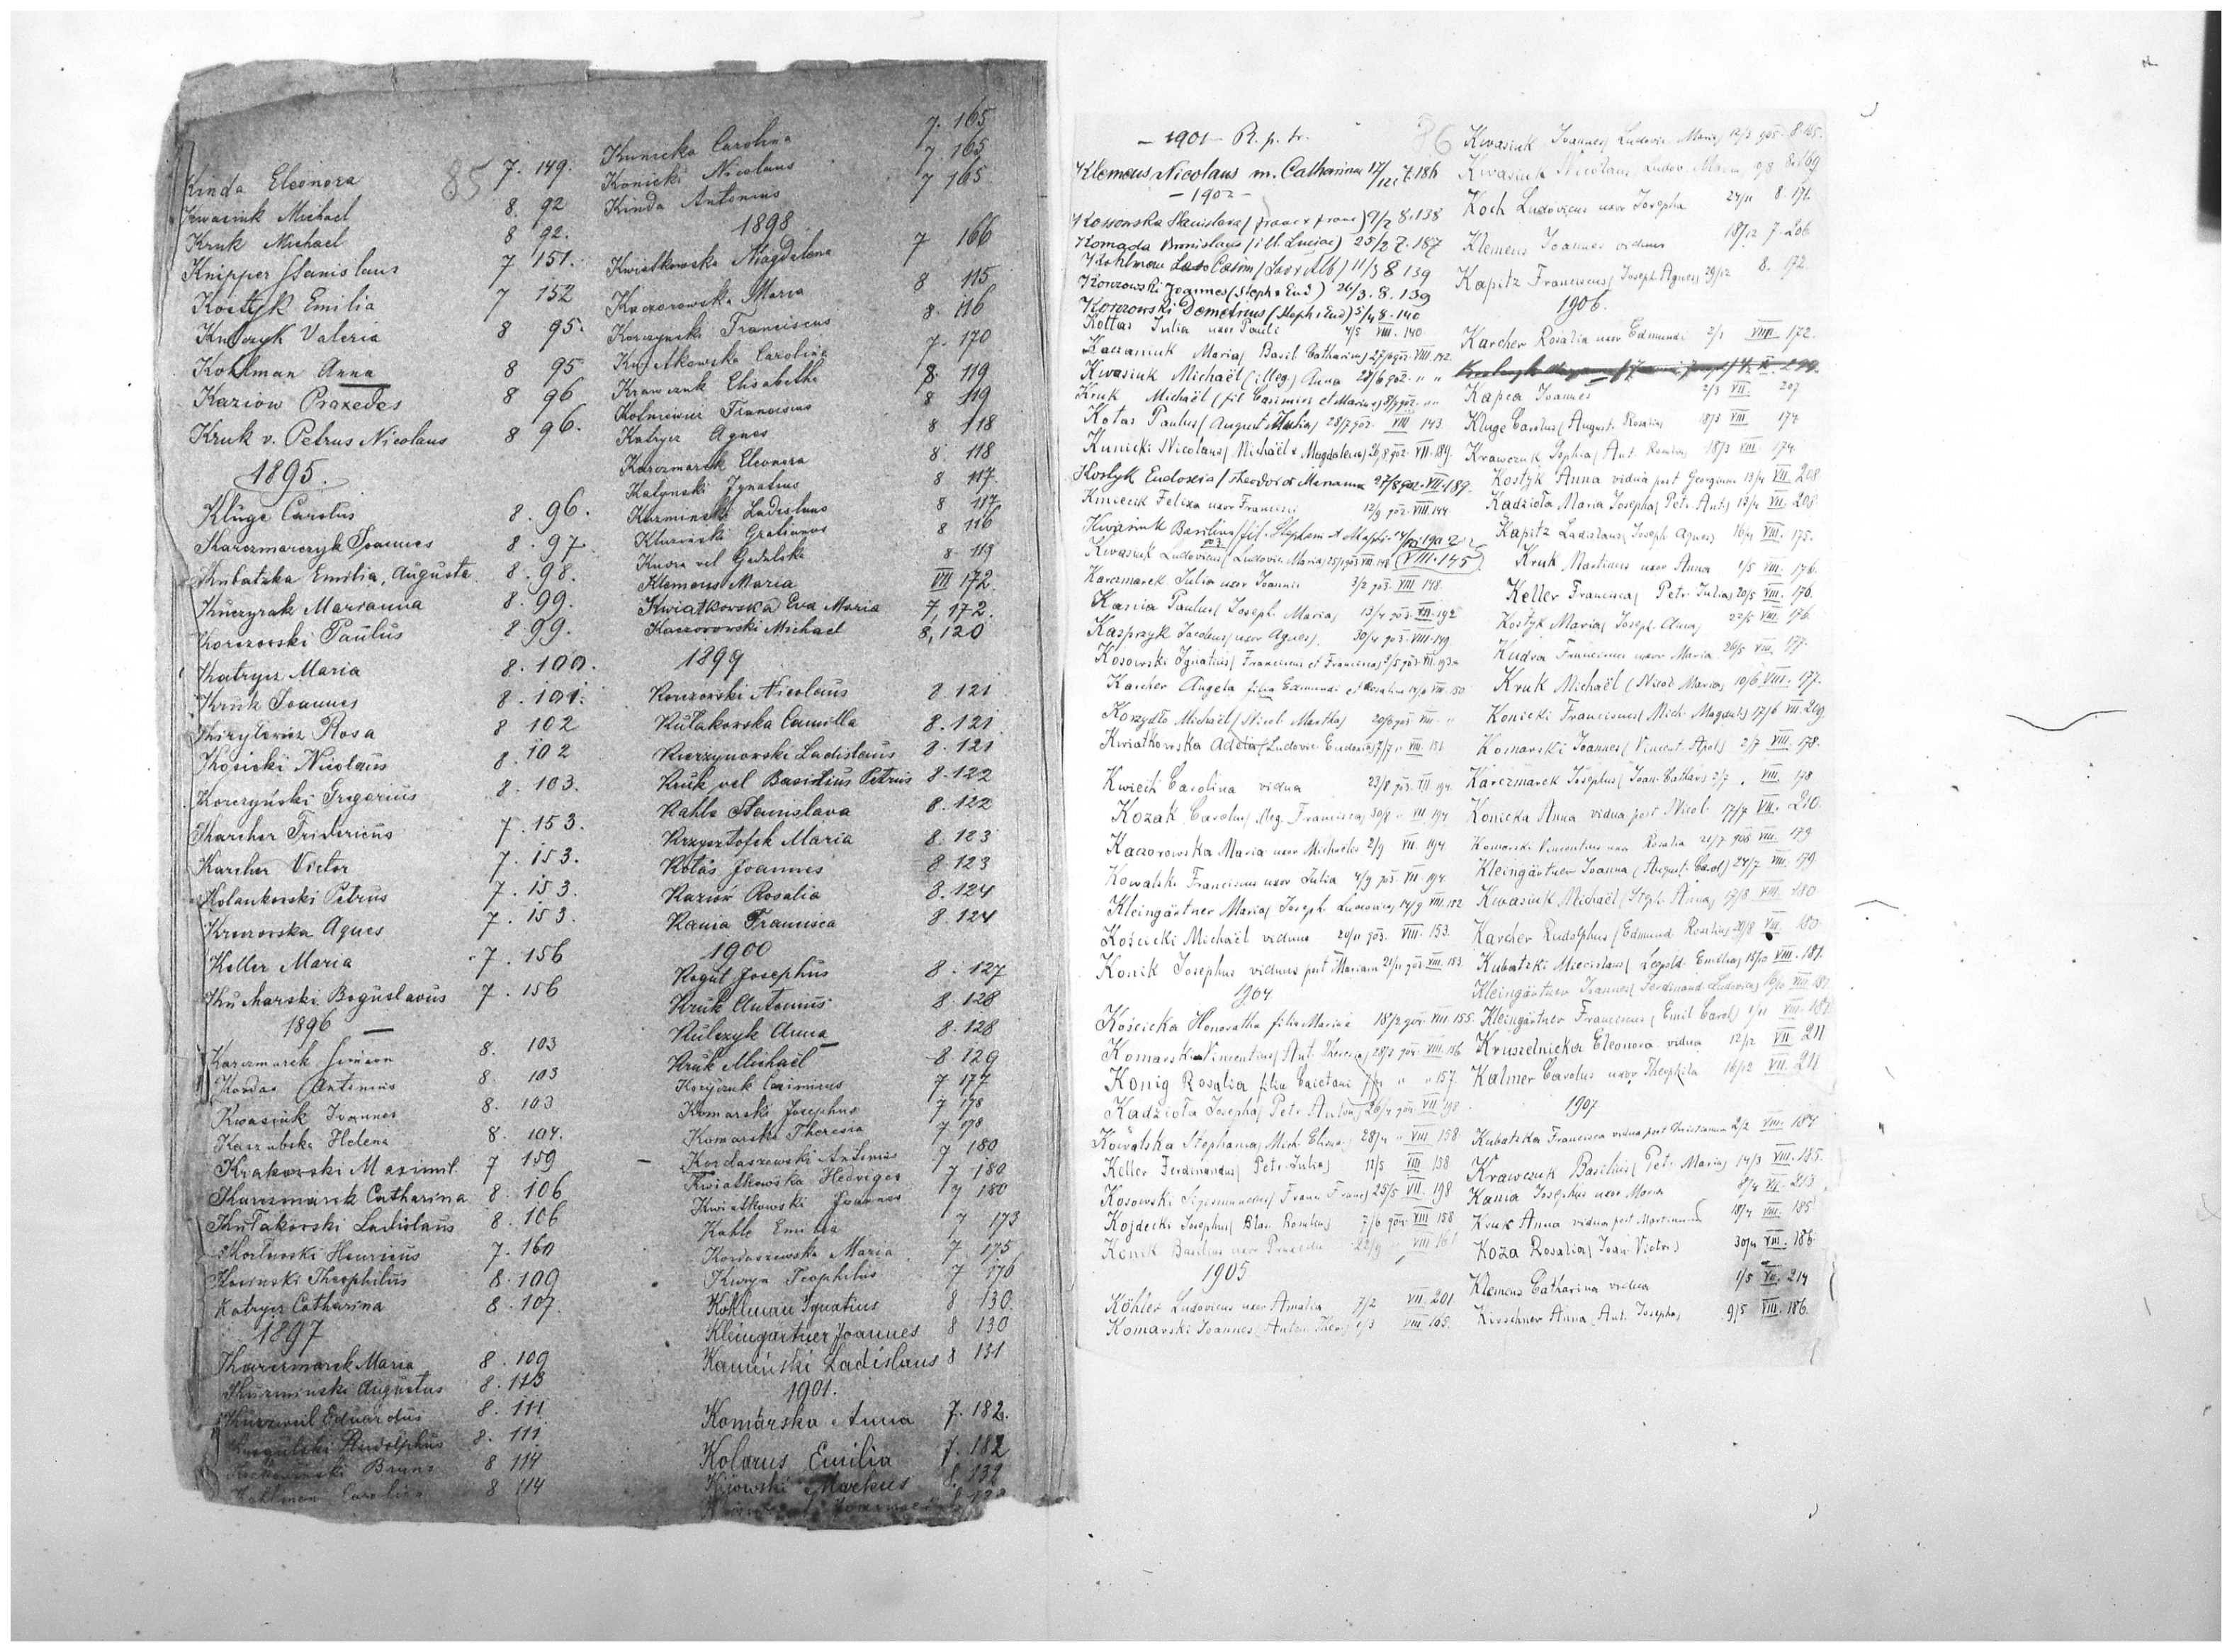 85
Kinda Eleonora 7. 149.
Kwasiuk Michael 8. 92
Kruk Michael 8 92.
Knipper Stanislaus 7 151.
Kostyk Emilia 7 152
Kulczyk Valeria 8 95.
Kohlman Anna 8 95
Kaziow Praxedes 8 96
Kruk v. Petrus Nicolaus 8 96.
1895.
Kluge Carolus 8. 96.
Karczmarczyk Joannes 8. 97
Kubatzka Emilia, Augusta 8. 98.
Kuczyrak Marianna 8. 99.
Korczowski Paulus 8 99.
Katrycz Maria 8. 100.
Kruk Joannes 8. 101.
Kirylewicz Rosa 8 102
Kosicki Nicolaus 8. 102
Korczyński Gregorius 8. 103.
Karcher Fridericus 7. 153.
Karcher Victor 7. 153.
Kolankowski Petrus 7. 153.
Agnes 7. 153.
Keller Maria 7. 156
Kucharski Boguslavus 7. 156
1896
Karczmarek Simeon 8. 103
Kordas Antonius 8. 103
Kwasiuk Joannes 8. 103
Kaszubska Helena 8. 104.
Krakowski Maximil. 7 159
Karczmarek Catharina 8. 106
Kułakowski Ladislaus 8. 106
Henricus 7. 160
Theophilus 8. 109
Katrycz Catharina 8. 107.
1897
Karczmarek Maria 8. 109
Kuzminski Augustus 8. 113
Kurzweil Eduardus 8. 111
Rudolphus 8. 111
Bruno 8 114
Kohlman Carolina 8 114
Kunicka Carolina 7. 165
Konicki Nicolaus 7. 165
Kinda Antonius 7 165
1898
Kwiatkowska Magdalena 7 166
Kaczorowska Maria 8 115
Korczynski Franciscus 8. 116
Kwiatkowska Carolina 7. 170
Krawczuk Elisabetha 8. 119
Franciscus 8 119
Katrycz Agnes 8 118
Karczmarek Eleonora 8. 118
Katynski Ignatius 8 117.
Kuzminski Ladislaus 8 117
Gratianus 8 116
Kudra vel Gedalska 8. 119
Klemens Maria VII 172.
Kwiatkowska Eva Maria 7, 172.
Kaczorowski Michael 8, 120
1899
Korczowski Nicolaus 8. 121
Kułakowska Camilla 8. 121
Kurzynowski Ladislaus 8. 121
Kruk vel Basidius Petrus 8. 122
Kahle Stanislava 8. 122
Krzysztofek Maria 8. 123
Kotas Joannes 8. 123
Kaziów Rosalia 8. 124
Kania Francisca 8. 124
1900
Kogut Josephus 8. 127
Kruk Antonius 8. 128
Kulczyk Anna 8. 128
Kruk Michael 8. 129
Casimirus 7 177
Komarski Josephus 7 178
Komarska Theresia 7 178
Kordaszewski Antonius 7 180
Kwiatkowska Hedviges 7 180
Kwiatkowski Joannes 7 180
Kahle Emilia 7 173
Kordaszewska Maria 7 175
Teophilus 7 176
Kohlman Ignatius 8 130.
Kleingärtner Joannes 8 130
Kamiński Ladislaus 8 131
1901.
Komarska Anna 7. 182.
Kolarus Emilia 7. 182
Kijowski Markus 8. 132
– 1901 – R. p. tr.
Klemens Nicolaus m. Catharinae 17/III 7.186
– 1902 –
Kossowska Stanislava (Franc x Franc) 9/2 8.138
Komada Bronislaus (ill. Luciae) 25/2 7.187
Kohlman Casim (Lad x Alb) 11/3 8 139
Korczowski Joannes (Steph x Eud) 26/3. 8. 139
Korczowski Demetrius (Steph x Eud) 5/4 8. 140
Kottas Julia uxor Pauli 4/5 VIII. 140.
Kaczaniuk Maria (Basil Catharina) VIII. 142.
Kwasiuk Michaël (illeg.) Anna 28/6 902. " "
Kruk Michaël (fil Casimiri et Marianna) 8/7 902. " "
Kotas Paulus (August. Julia) 28/7 902. VIII 143.
Kunicki Nicolaus (Michaël x Magdalena) 26/8 902. VII. 189.
Kostyk Eudoxia (Theodor x Marianna 27/8 902. VII. 189.
Kmiecik Felixa uxor Francisci 12/9 902. VIII 144
Kwasiuk Basilius (fil. Stephani et 1902
Kwasiuk Ludovicus (Ludovic. Maria) VIII. 148 (VIII. 145)
Karczmarek Julia uxor Joannis 3/2 903. VIII 148.
Kania Paulus (Joseph. Maria) 13/4 903. VII. 192
Kasprzyk Jacobus (uxor Agnes). 30/4 903. VIII. 149
Kosowski Ignatius (Franciscus et Francisca) VII. 193.
Karcher Angela filia Edmundi et Rosaliae VIII. 150.
Korzydło Michaël (Nicol. Martha) VIII. "
Kwiatkowska Adela (Ludovic. Eudoxia) 7/7 " VIII. 151
Kwiech Carolina vidua 23/8 903. VII 194.
Kozak Carolus (illeg. Francisca) 30/8 " VII 194
Kaczorowska Maria uxor Michaelis 2/9 VII. 194
Kowalski Franciscus uxor Julia 4/9 903. VII 194.
Kleingärtner Maria (Joseph. Ludovica) 14/9 VIII. 152
Kościcki Michaël viduus 20/11 903. VIII. 153.
Konik Josephus viduus post Mariam 21/11 903. VIII. 153
1904
Kościcka Honoratha filia Mariae 18/2 904. VIII. 155
Komarski Vincentius (Ant. Theresia) 28/2 904. VIII. 156
König Rosalia filia Caietani " " 157.
Kadzioła Josepha (Petr. Antonia) 26/4 904. VII 198.
Kowalska Stephania (Mich. 28/4 " VIII 158.
Keller Ferdinandus (Petr. Julia) 11/5 VIII 158
Kosowski Sigismundus (Franc Franc) 25/5 VII. 198
Kojdecki Josephus (Blas. Rosalia) 7/6 904. VIII 158.
Konik Basilius uxor Praxeda 22/9 VIII 161
1905
Köhler Ludovicus uxor Amalia 7/2 VII. 201.
Komarski Joannes (Anton. Theres) 1/3 VIII 165.
86
Kwasiuk Joannes (Ludovic. Maria) 12/3 905. 8. 165.
Kwasiuk Nicolaus Ludov. Maria 8. 169
Koch Ludovicus uxor Josepha 24/11 8. 171.
Klemens Joannes viduus 18/12 7. 206
Kapitz Franciscus (Joseph. Agnes) 29/12 8. 172.
1906.
Karcher Rosalia uxor Edmundi 2/1 VIII. 172.
Kapca Joannes 2/3 VII. 207.
Kluge Carolus (August. Rosalia) 18/3 VIII 174
Krawczuk Sophia (Ant. Rosalia) 18/3 VIII 174.
Kostyk Anna vidua post Georgium 13/4 VII. 208
Kadzioła Maria Josepha (Petr. Ant.) 13/4 VII. 208.
Kapitz Ladislaus (Joseph Agnes) 16/4 VIII. 175.
Kruk Martinus uxor Anna 1/5 VIII. 176.
Keller Francisca (Petr. Julia) 20/5 VIII. 176.
Kostyk Maria (Joseph. Anna) 22/5 VIII. 176.
Kudra Franciscus uxor Maria 26/5 VIII. 177.
Kruk Michaël (Nicol Maria) 10/6 VIII. 177.
Konicki Franciscus (Mich. Magdal.) 17/6 VII. 209.
Komarski Joannes (Vincent. Apol.) 2/7 VIII. 178.
Karczmarek Josephus (Joan. Cathar.) 2/7. VIII. 178
Konicka Anna vidua post Nicol. 17/7 VII. 210.
Komarski Vincentius uxor Rosalia 21/7 906 VIII. 179
Kleingärtner Joanna (August. Carol.) 24/7 VIII. 179
Kwasiuk Michaël (Steph. Anna) 17/8 VIII. 180.
Karcher Rudolphus (Edmund Rosalia) 29/8 VIII. 180.
Kubatzki Miecislaus (Leopold. Emilia) 15/10 VIII. 181.
Kleingärtner Joannes (Ferdinand. Ludovica) VIII 182.
Kleingärtner Franciscus (Emil Carol.) 1/11 VIII. 182.
Kruszelnicka Eleonora vidua 12/12 VII 211
Kalmer Carolus uxor Theophila 16/12 VII. 211
1907
Kubatzka Francisca vidua post Christianum 2/2 VIII. 184
Krawczuk Basilius (Petr. Maria) 14/3 VIII. 185.
Kania Josephus uxor Maria 8/4 VII. 213
Kruk Anna vidua post Martinum 18/4 VIII. 185
Koza Rosalia (Joan. Victor.) 30/4 VIII. 186.
Klemens Catharina vidua 1/5 VII. 214
Kirschner Anna (Ant. Josepha) 9/5 VIII. 186.